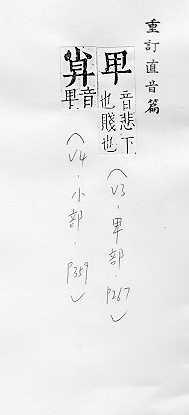 重訂直音篇
𤰞
音悲下
也賤也
（V3．𤰞部．P267）
音
𤰞
（V4．小部．P359）